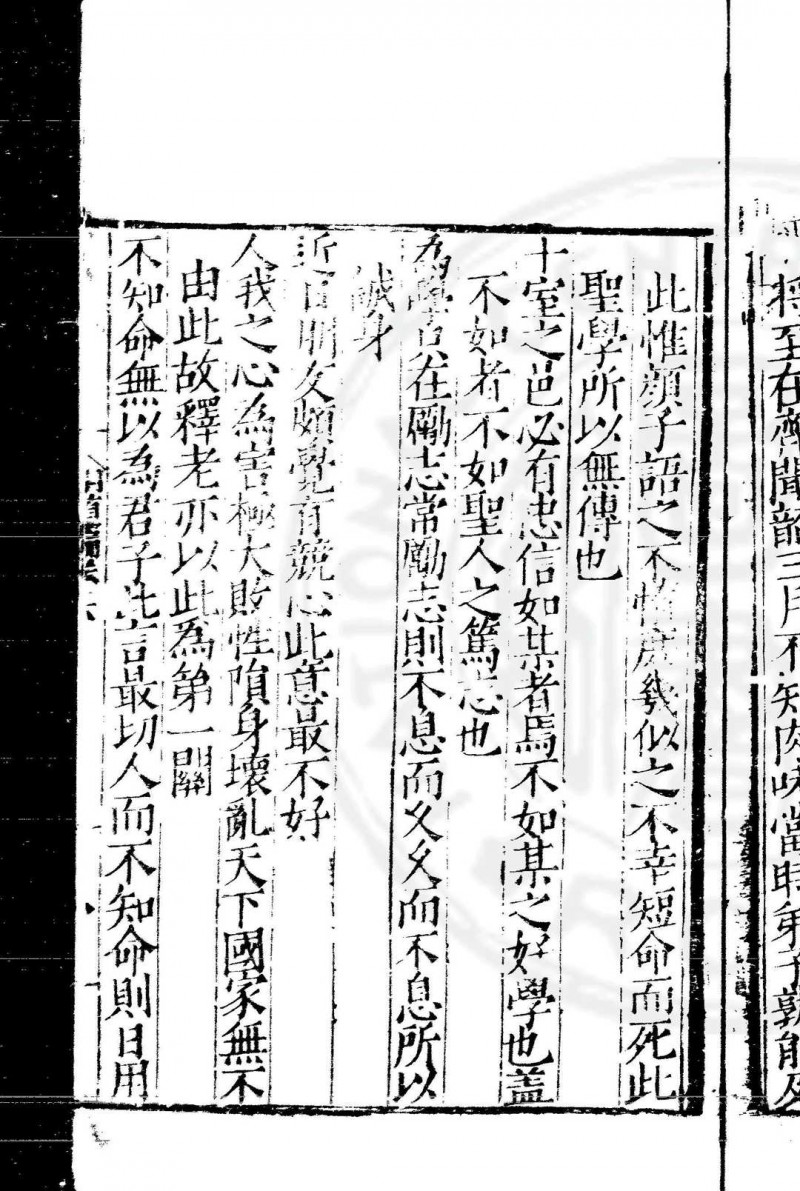 將至在齊聞韶三月不知肉味當時弟子孰能及
此惟顔子語之不惰庶幾似之不幸短命而死此
聖學所以無傳也
十室之邑必有忠信如某者焉不如某之好學也盖
不如者不如聖人之篤志也
為學言在勵志常勵志則不息而久久而不息所以
誠身
近日朋友頗覺有競心此意最不好
人我之心為害極大敗性隕身壞亂天下國家無不
由此故釋老亦以此為第一關
不知命無以為君子此言最切人而不知命則日用